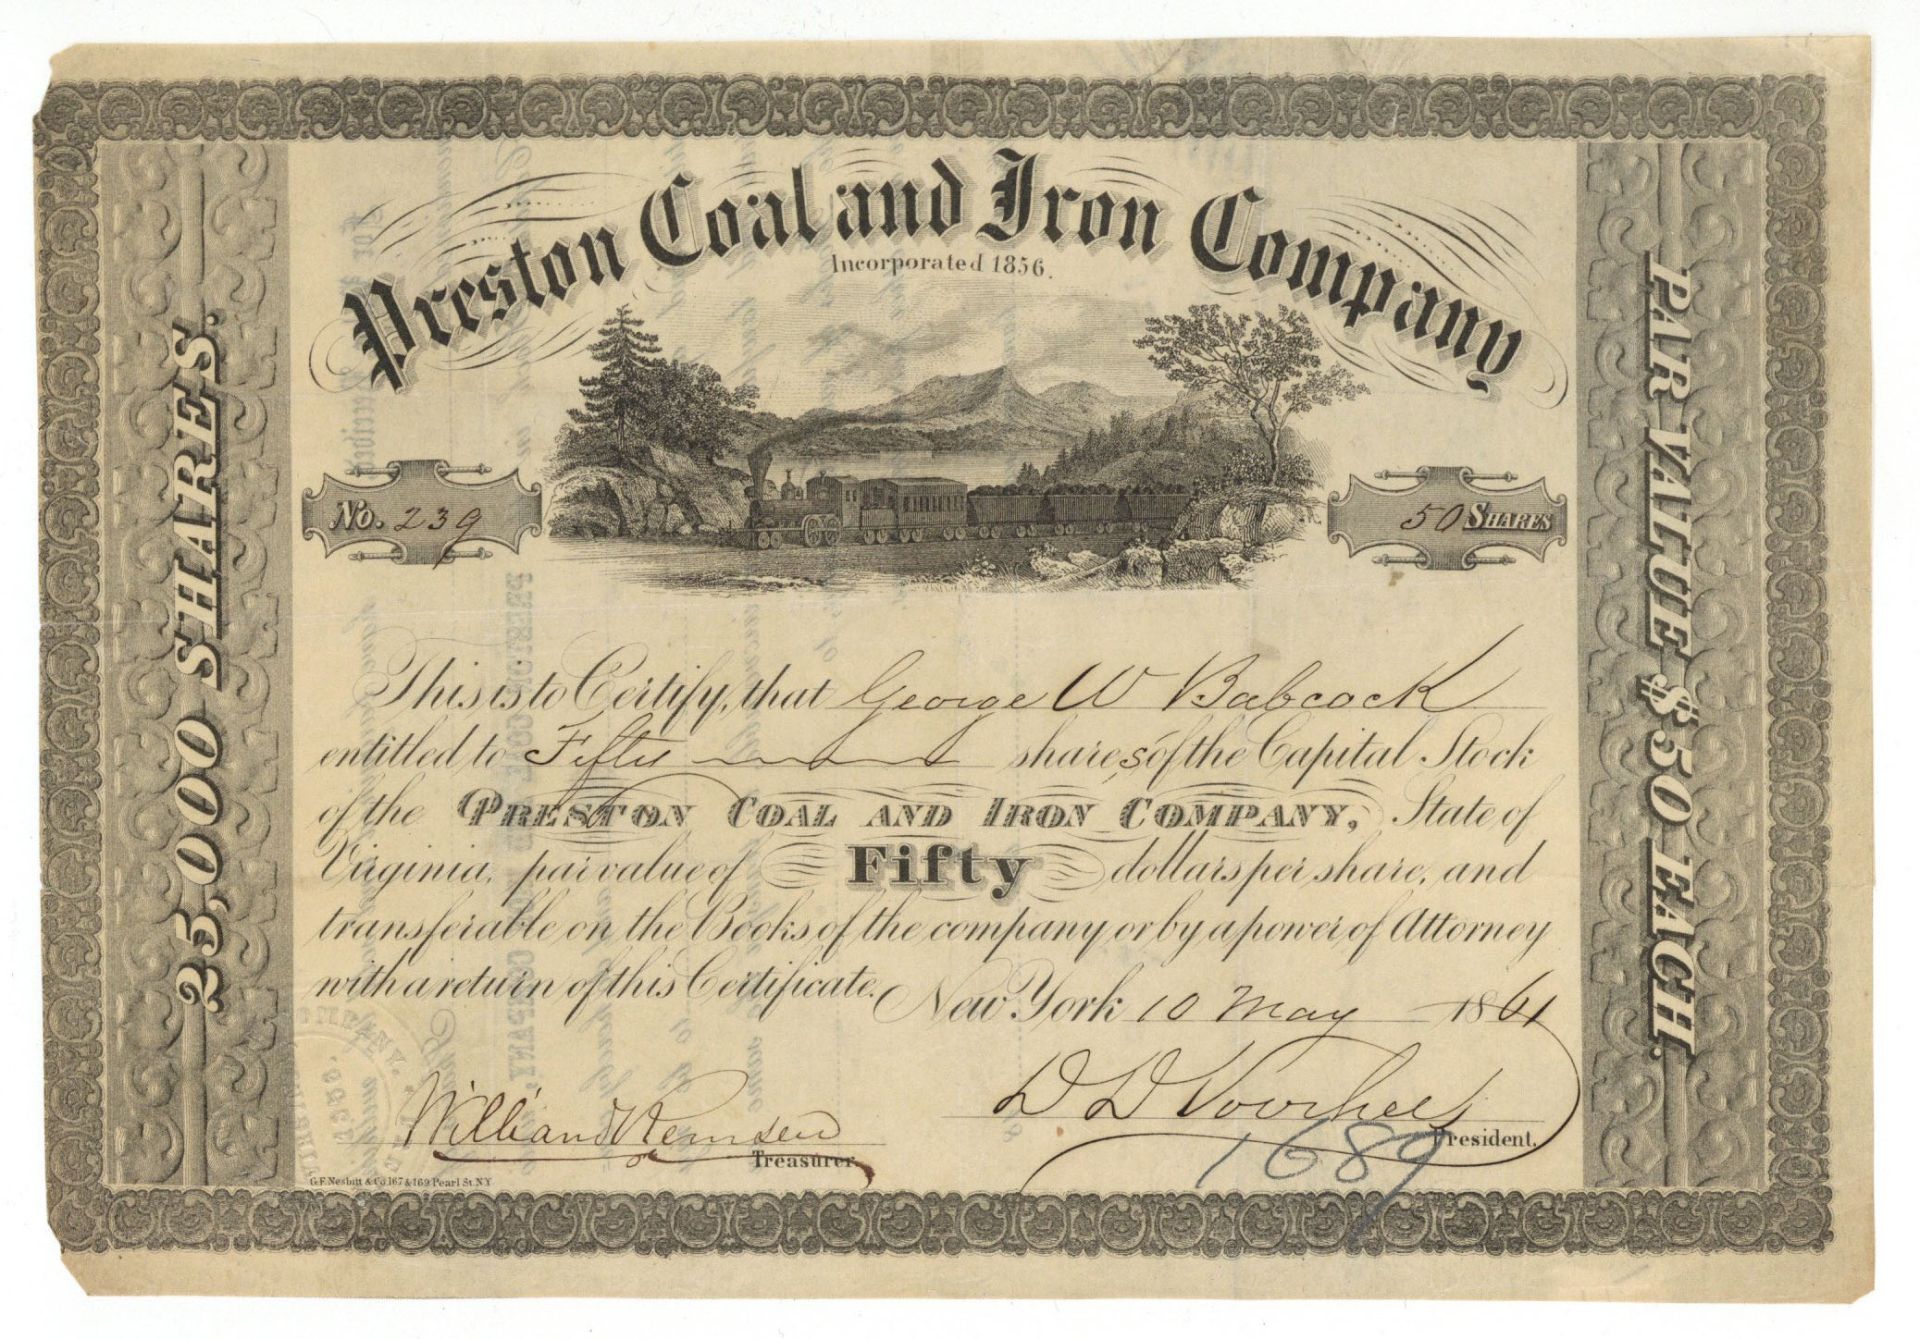 Preston Coal and Iron Company
Incorporated 1856.
No. 239
50 SHARES
25,000 SHARES.
PAR VALUE $50 EACH.
This is to Certify, that George W Babcock
entitled to Fifty shares of the Capital Stock
of the PRESTON COAL AND IRON COMPANY, State of
Virginia, par value of Fifty dollars per share, and
transferable on the Books of the company or by a power of Attorney
with a return of this Certificate.
New York 10 May 1861
William Remsen
Treasurer.
D D Voorhees
President.
1689
G.F. Nesbitt & Co. 167 & 169 Pearl St. N.Y